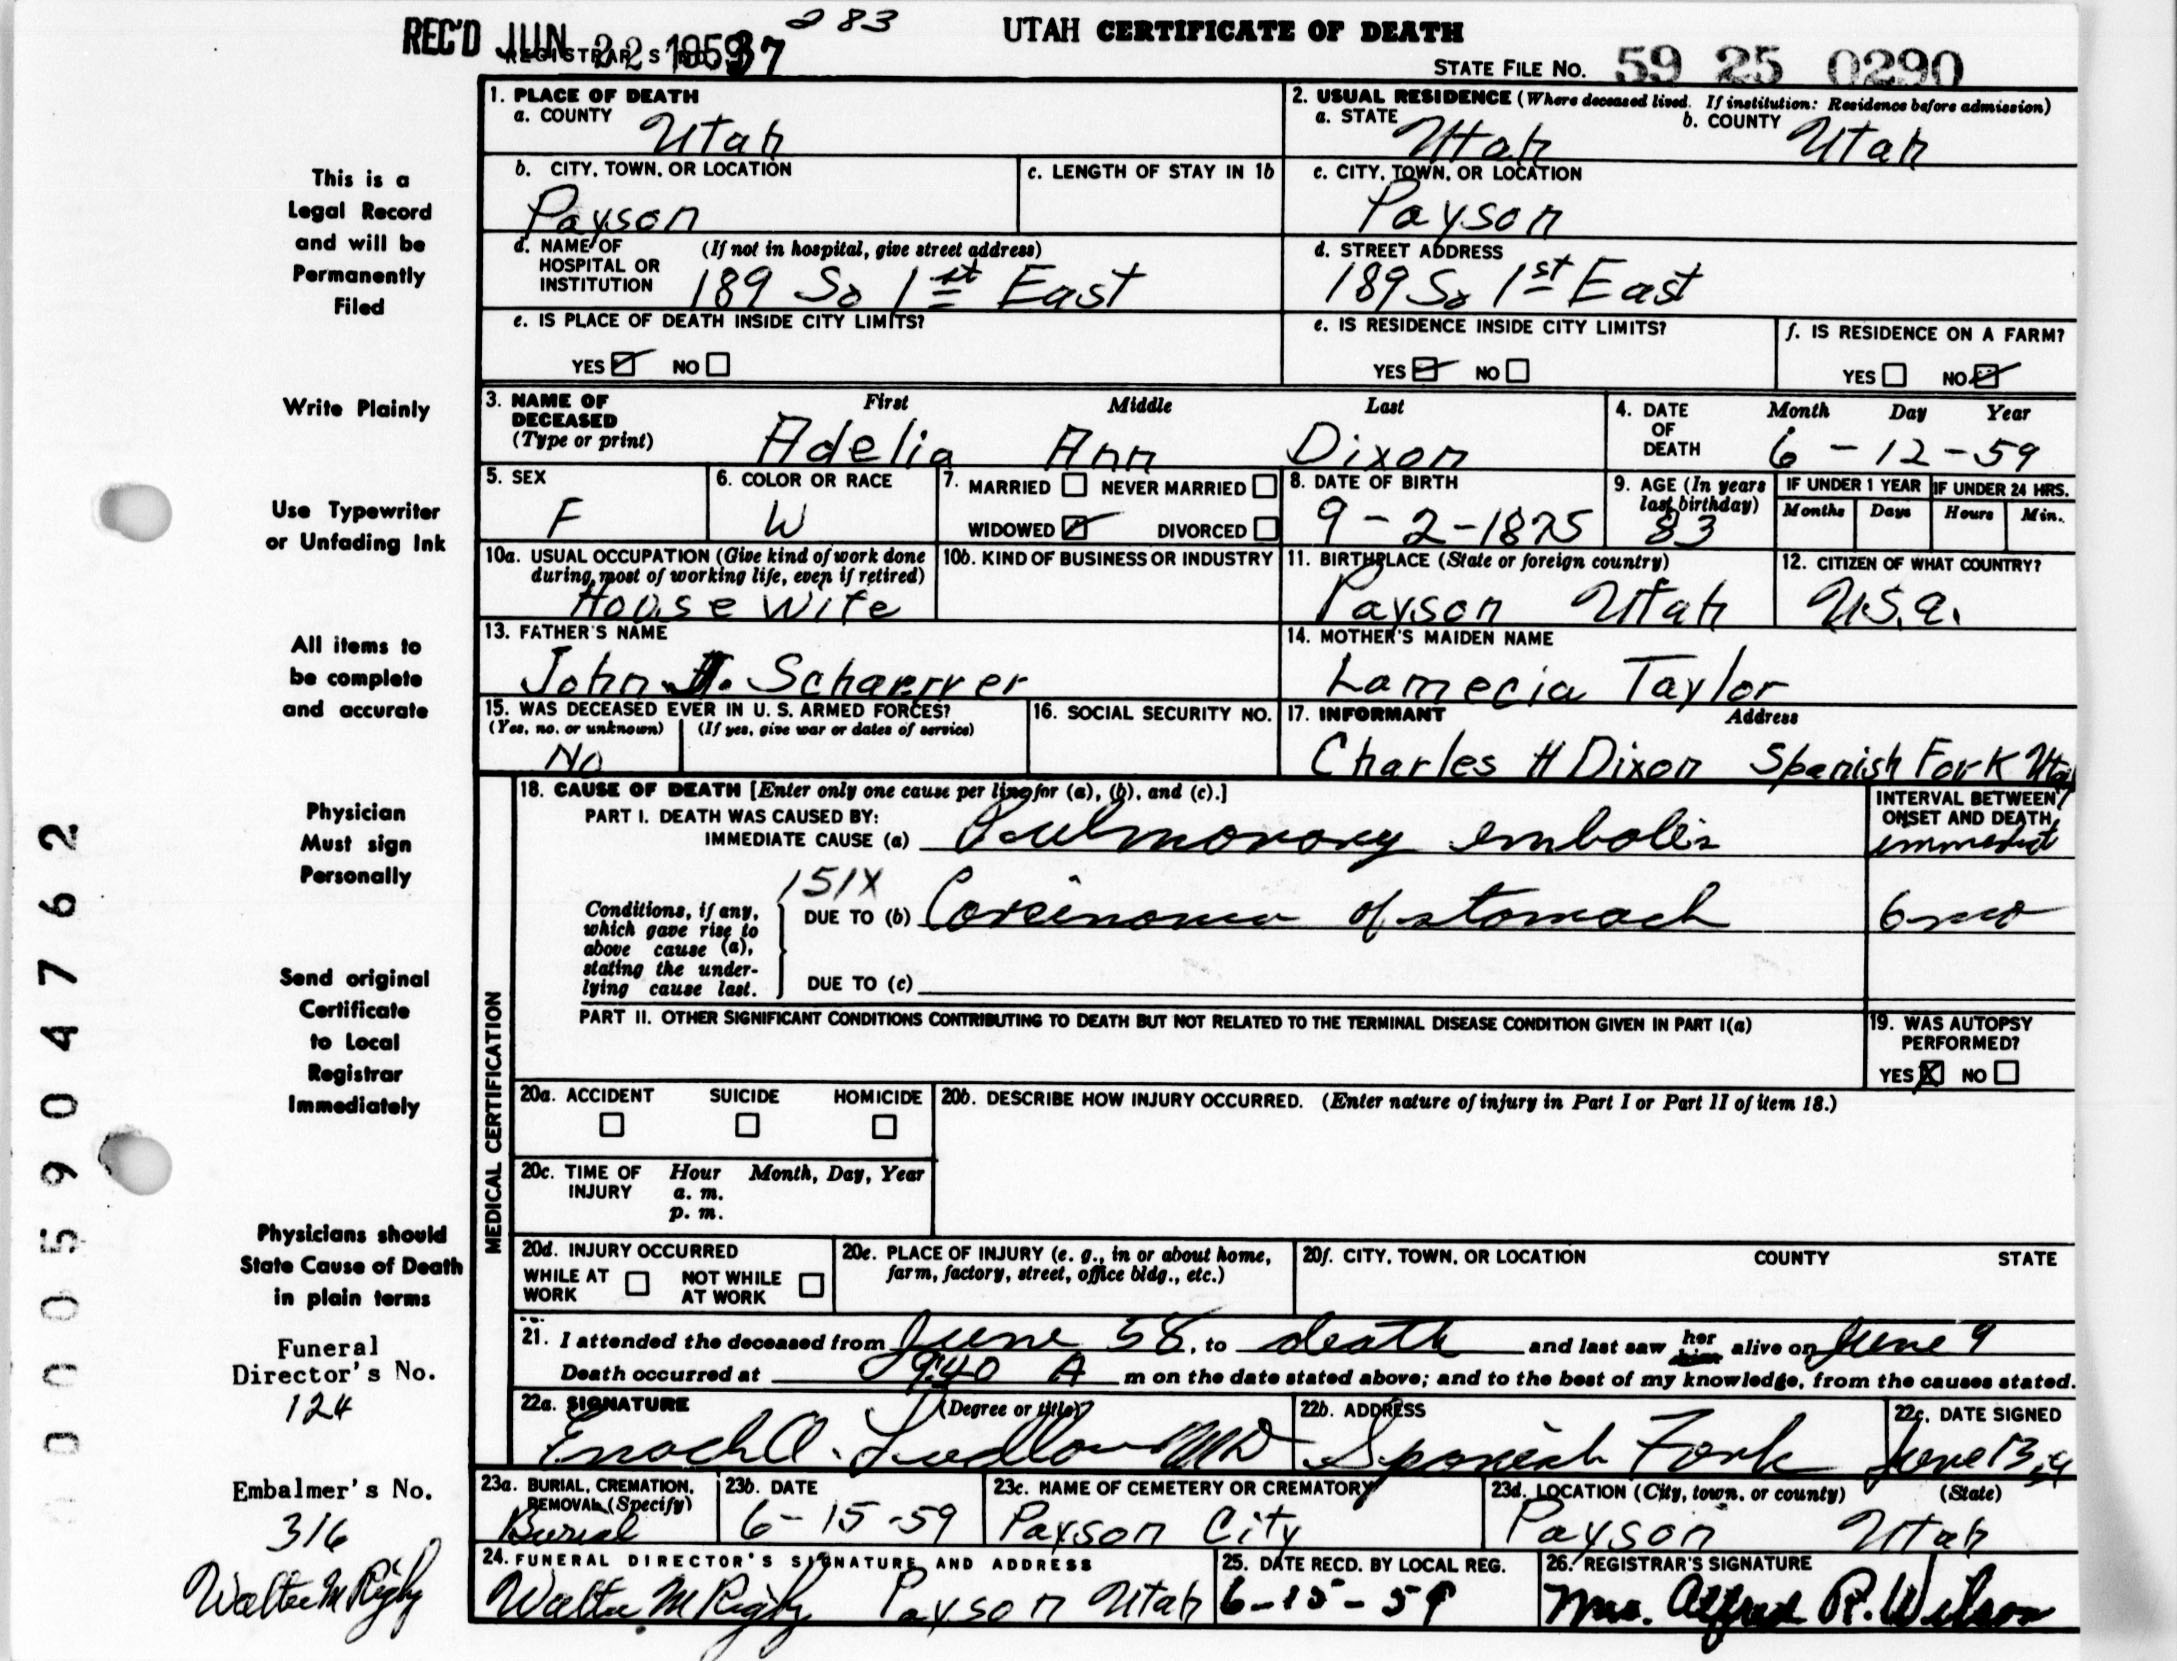 283
REC'D JUN 22 1959 37
UTAH CERTIFICATE OF DEATH
STATE FILE NO. 59 25 0290
1. PLACE OF DEATH
a. COUNTY Utah
2. USUAL RESIDENCE (Where deceased lived. If institution: Residence before admission)
a. STATE Utah b. COUNTY Utah
b. CITY, TOWN, OR LOCATION Payson
c. LENGTH OF STAY IN 1b
c. CITY, TOWN, OR LOCATION Payson
d. NAME OF HOSPITAL OR INSTITUTION (If not in hospital, give street address) 189 So 1st East
d. STREET ADDRESS 189 So 1st East
e. IS PLACE OF DEATH INSIDE CITY LIMITS?
YES NO
e. IS RESIDENCE INSIDE CITY LIMITS?
YES NO
f. IS RESIDENCE ON A FARM?
YES NO
3. NAME OF DECEASED (Type or print) First Middle Last
Adelia Ann Dixon
4. DATE OF DEATH Month Day Year
6-12-59
5. SEX F
6. COLOR OR RACE W
7. MARRIED NEVER MARRIED
WIDOWED DIVORCED
8. DATE OF BIRTH 9-2-1875
9. AGE (In years last birthday) 83
IF UNDER 1 YEAR Months Days
IF UNDER 24 HRS. Hours Min.
10a. USUAL OCCUPATION (Give kind of work done during most of working life, even if retired)
House Wife
10b. KIND OF BUSINESS OR INDUSTRY
11. BIRTHPLACE (State or foreign country)
Payson Utah
12. CITIZEN OF WHAT COUNTRY?
U.S.a.
13. FATHER'S NAME
John J. Schaerrer
14. MOTHER'S MAIDEN NAME
Lamecia Taylor
15. WAS DECEASED EVER IN U. S. ARMED FORCES?
(Yes, no, or unknown) (If yes, give war or dates of service)
No
16. SOCIAL SECURITY NO.
17. INFORMANT Address
Charles H Dixon Spanish Fork Utah
18. CAUSE OF DEATH [Enter only one cause per line for (a), (b), and (c).]
PART I. DEATH WAS CAUSED BY:
IMMEDIATE CAUSE (a) Pulmonary embolis
INTERVAL BETWEEN ONSET AND DEATH
immediat
151X
Conditions, if any, which gave rise to above cause (a), stating the underlying cause last.
DUE TO (b) Carcinoma of stomach 6 mo
DUE TO (c)
PART II. OTHER SIGNIFICANT CONDITIONS CONTRIBUTING TO DEATH BUT NOT RELATED TO THE TERMINAL DISEASE CONDITION GIVEN IN PART I(a)
19. WAS AUTOPSY PERFORMED?
YES X NO
MEDICAL CERTIFICATION
20a. ACCIDENT SUICIDE HOMICIDE
20b. DESCRIBE HOW INJURY OCCURRED. (Enter nature of injury in Part I or Part II of item 18.)
20c. TIME OF INJURY Hour Month, Day, Year
a. m.
p. m.
20d. INJURY OCCURRED
WHILE AT WORK NOT WHILE AT WORK
20e. PLACE OF INJURY (e. g., in or about home, farm, factory, street, office bldg., etc.)
20f. CITY, TOWN, OR LOCATION COUNTY STATE
21. I attended the deceased from June 58, to death and last saw her him alive on June 9
Death occurred at 9:40 A m on the date stated above; and to the best of my knowledge, from the causes stated.
22a. SIGNATURE (Degree or title)
Enoch A. Ludlow MD
22b. ADDRESS
Spanish Fork
22c. DATE SIGNED
June 13, 59
23a. BURIAL, CREMATION, REMOVAL (Specify)
Burial
23b. DATE
6-15-59
23c. NAME OF CEMETERY OR CREMATORY
Payson City
23d. LOCATION (City, town, or county) (State)
Payson Utah
24. FUNERAL DIRECTOR'S SIGNATURE AND ADDRESS
Walter M Rigby Payson Utah
25. DATE RECD. BY LOCAL REG.
6-15-59
26. REGISTRAR'S SIGNATURE
Mrs. Alfred R. Wilson
This is a
Legal Record
and will be
Permanently
Filed
Write Plainly
Use Typewriter
or Unfading Ink
All items to
be complete
and accurate
Physician
Must sign
Personally
Send original
Certificate
to Local
Registrar
Immediately
Physicians should
State Cause of Death
in plain terms
Funeral
Director's No.
124
Embalmer's No.
316
Walter M Rigby
0005904762